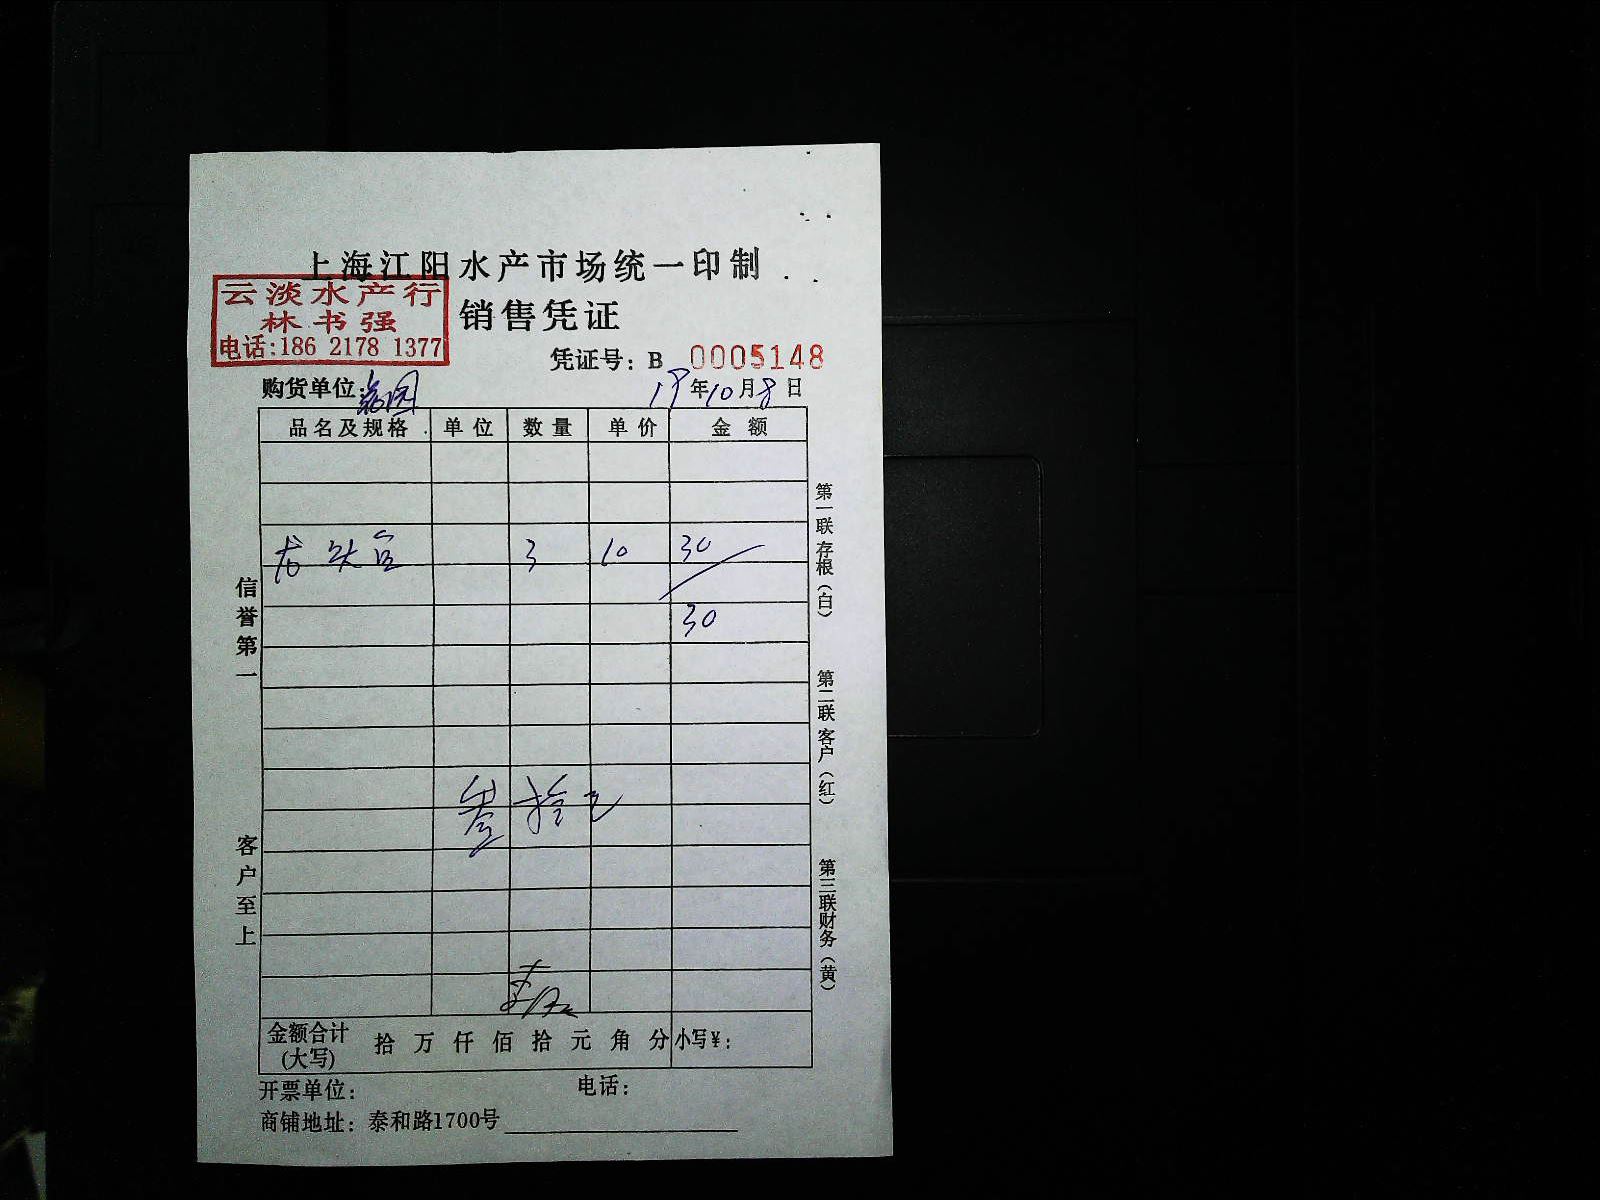 上海江阳水产市场统一印制
云淡水产行
林书强
电话:186 2178 1377
销售凭证
凭证号：B 0005148
购货单位：
19年10月8日
品名及规格 单位 数量 单价 金额
龙头 3 10 30
30
叁拾元
金额合计(大写) 拾 万 仟 佰 拾 元 角 分 小写¥：
开票单位： 电话：
商铺地址：泰和路1700号
信誉第一
客户至上
第一联存根（白）
第二联客户（红）
第三联财务（黄）